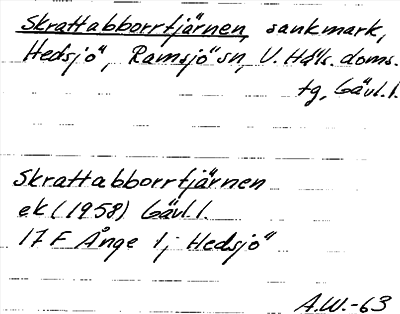 Skrattabborrtjärnen, sankmark,
Hedsjö, Ramsjö sn, V. Häls. doms.
tg, Gävl. l.
Skrattabborrtjärnen
ek (1958) Gävl. l.
17 F Ånge 1; Hedsjö
A.W.-63